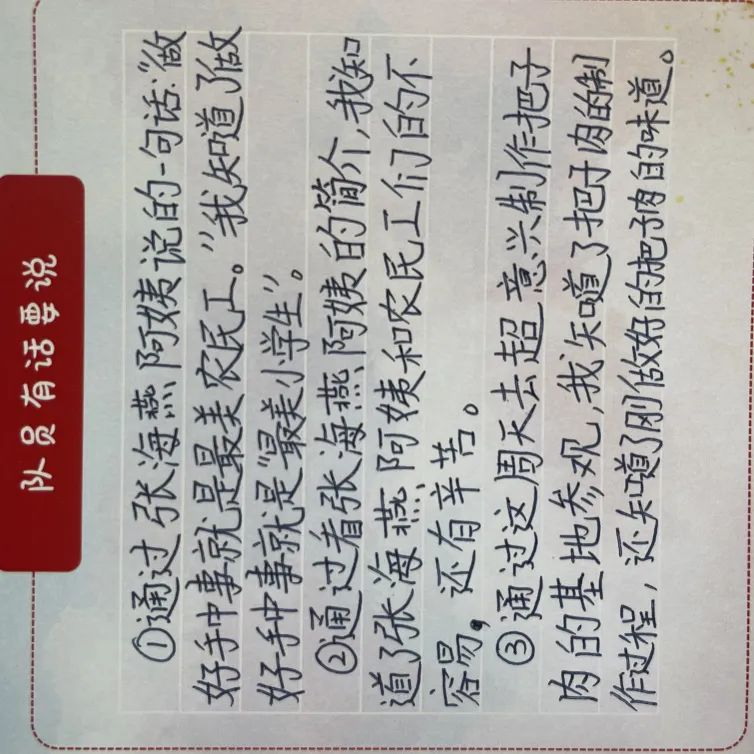 队员有话要说
①通过张海燕阿姨说的一句话:“做
好手中事就是最美农民工。”我知道了做
好手中事就是“最美小学生”。
②通过看张海燕阿姨的简介,我知
道了张海燕阿姨和农民工们的不
容易,还有辛苦。
③通过这周天去超意兴制作把子
肉的基地参观,我知道了把子肉的制
作过程,还知道了刚做好的把子肉的味道。